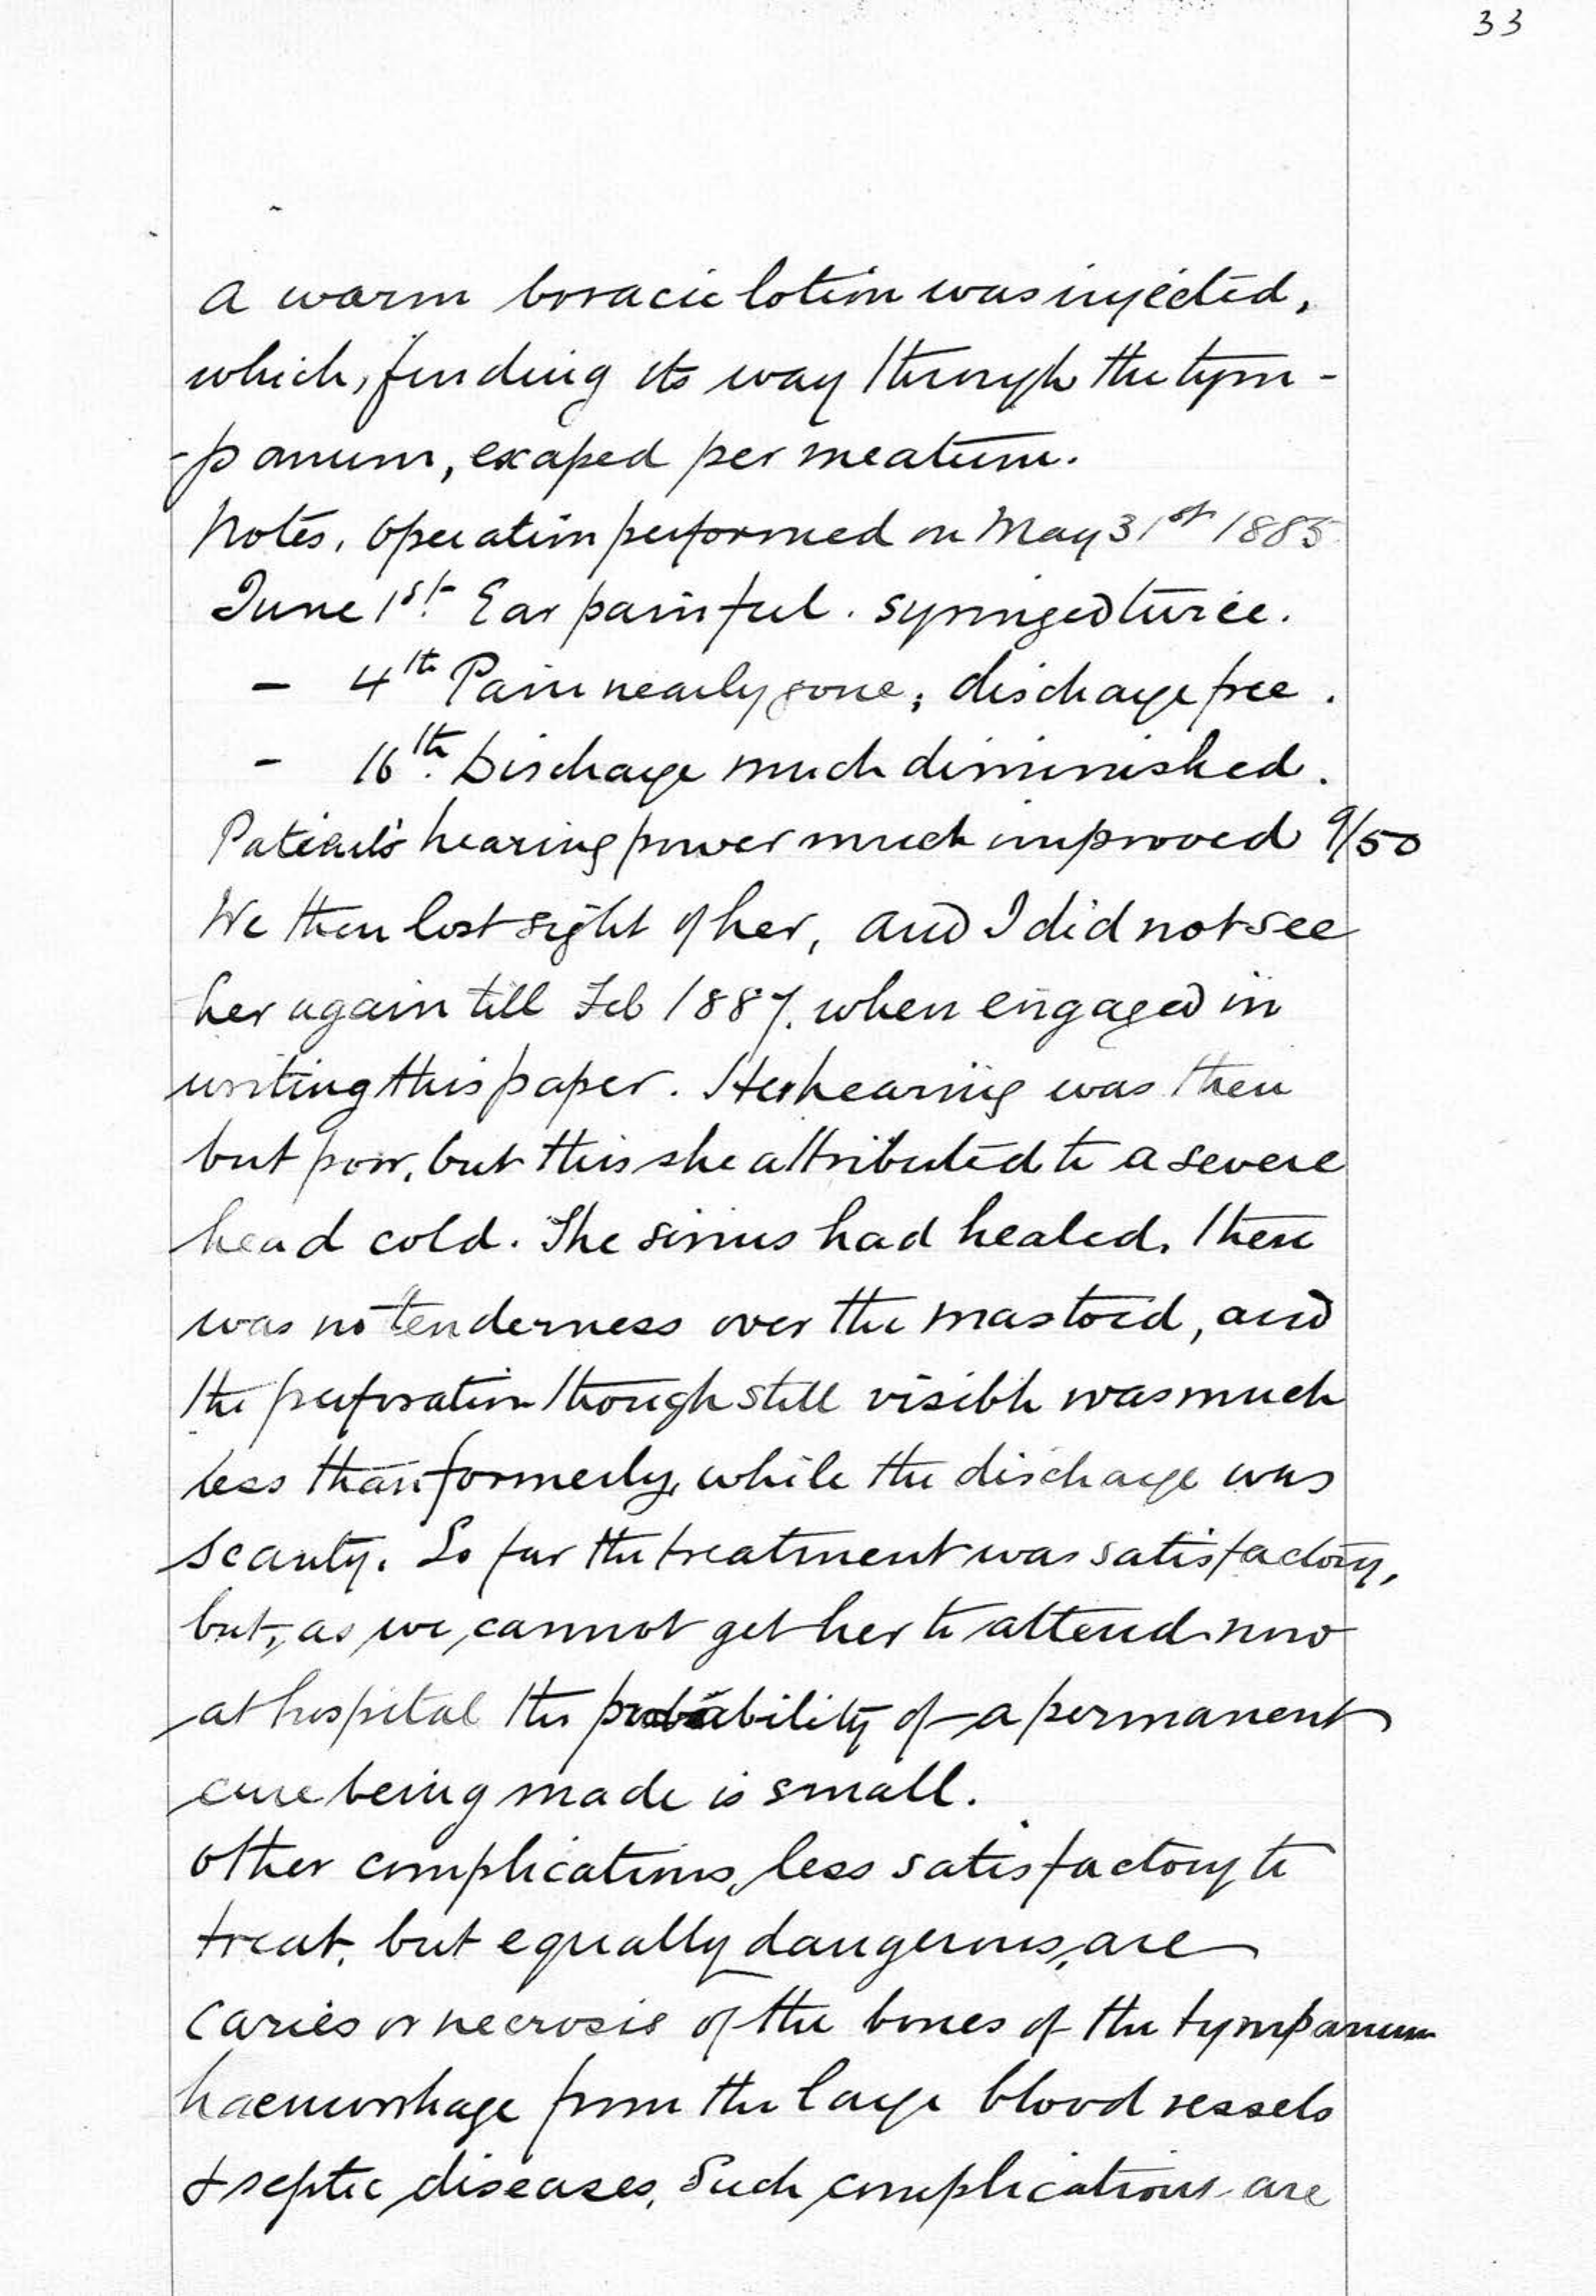 33
A warm boracic lotion was injected,
which, finding its way through the tym-
-panum, escaped per meatum.
Notes. Operation performed on May 31st 1885
June 1st. Ear painful. Syringed twice.
- 4th Pain nearly gone; discharge free.
- 16th. Discharge much diminished.
Patient's hearing power much improved 9/50
We then lost sight of her, and I did not see
her again till Feb 1887, when engaged in
writing this paper. Her hearing was then
but poor, but this she attributed to a severe
head cold. The sinus had healed, there
was no tenderness over the mastoid, and
the perforation though still visible was much
less than formerly, while the discharge was
scanty. So far the treatment was satisfactory,
but, as we cannot get her to attend now
at hospital the probability of a permanent
cure being made is small.
Other complications, less satisfactory to
treat, but equally dangerous, are
Caries or necrosis of the bones of the tympanum
haemorrhage from the large blood vessels
& septic diseases. Such complications are